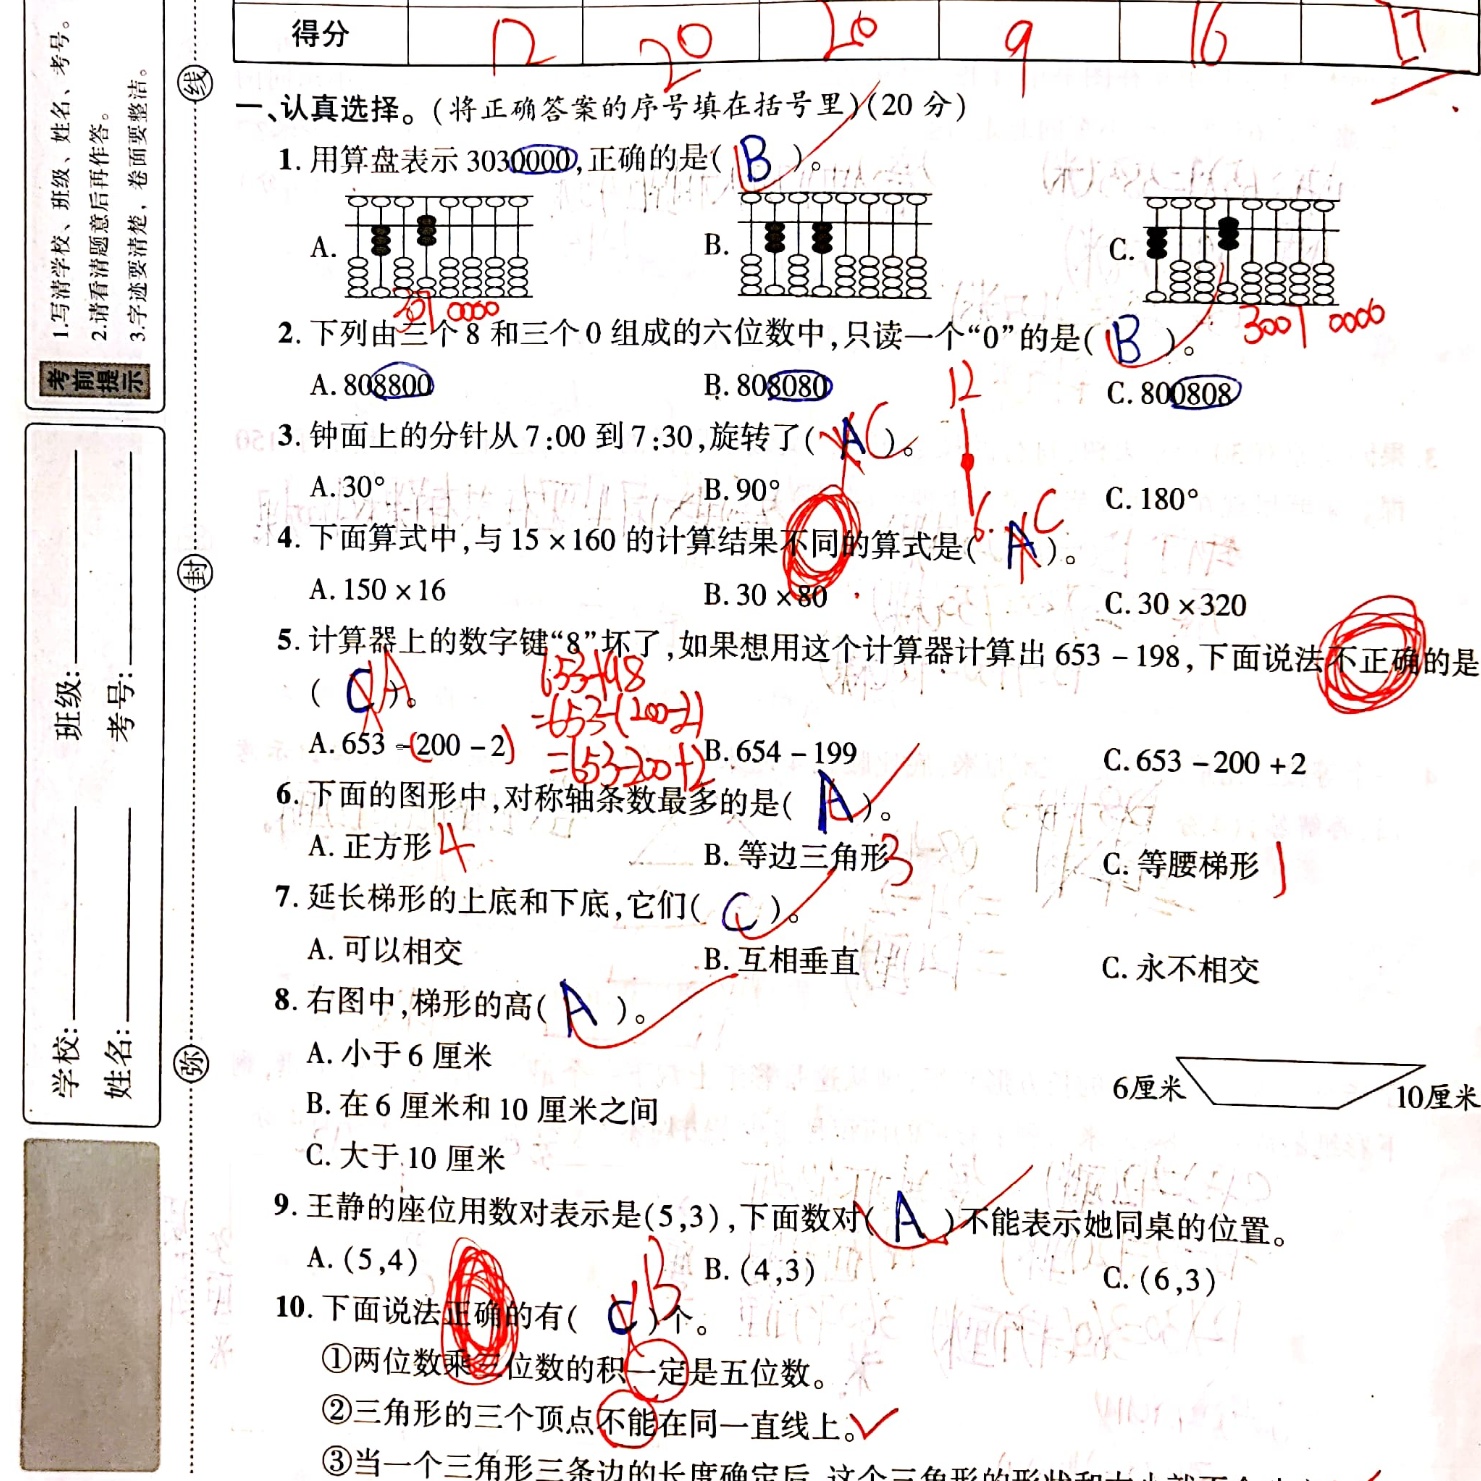 得分 12 20 20 9 16 17
一、认真选择。(将正确答案的序号填在括号里)(20 分)
1. 用算盘表示 3030000,正确的是( B )。
A.
B.
C.
301 0000
3001 0000
2. 下列由三个 8 和三个 0 组成的六位数中,只读一个“0”的是( B )。
A. 808800 B. 808080 C. 800808
12
3. 钟面上的分针从 7:00 到 7:30,旋转了( A C )。
A. 30° B. 90° C. 180°
6
4. 下面算式中,与 15×160 的计算结果不同的算式是( A C )。
A. 150×16 B. 30×80 C. 30×320
5. 计算器上的数字键“8”坏了,如果想用这个计算器计算出 653-198,下面说法不正确的是
( C A )。
653-198
=653-(200-2)
=653-200+2
A. 653-(200-2) B. 654-199 C. 653-200+2
6. 下面的图形中,对称轴条数最多的是( A )。
A. 正方形 4 B. 等边三角形 3 C. 等腰梯形 1
7. 延长梯形的上底和下底,它们( C )。
A. 可以相交 B. 互相垂直 C. 永不相交
8. 右图中,梯形的高( A )。
A. 小于 6 厘米
B. 在 6 厘米和 10 厘米之间
C. 大于 10 厘米
6厘米 10厘米
9. 王静的座位用数对表示是(5,3),下面数对( A )不能表示她同桌的位置。
A. (5,4) B. (4,3) C. (6,3)
10. 下面说法正确的有( C B )个。
①两位数乘三位数的积一定是五位数。
②三角形的三个顶点不能在同一直线上。
③当一个三角形三条边的长度确定后,这个三角形的形状和大小就
考前提示
1.写清学校、班级、姓名、考号。
2.请看清题意后再作答。
3.字迹要清楚，卷面要整洁。
学校: 班级:
姓名: 考号:
弥 封 线